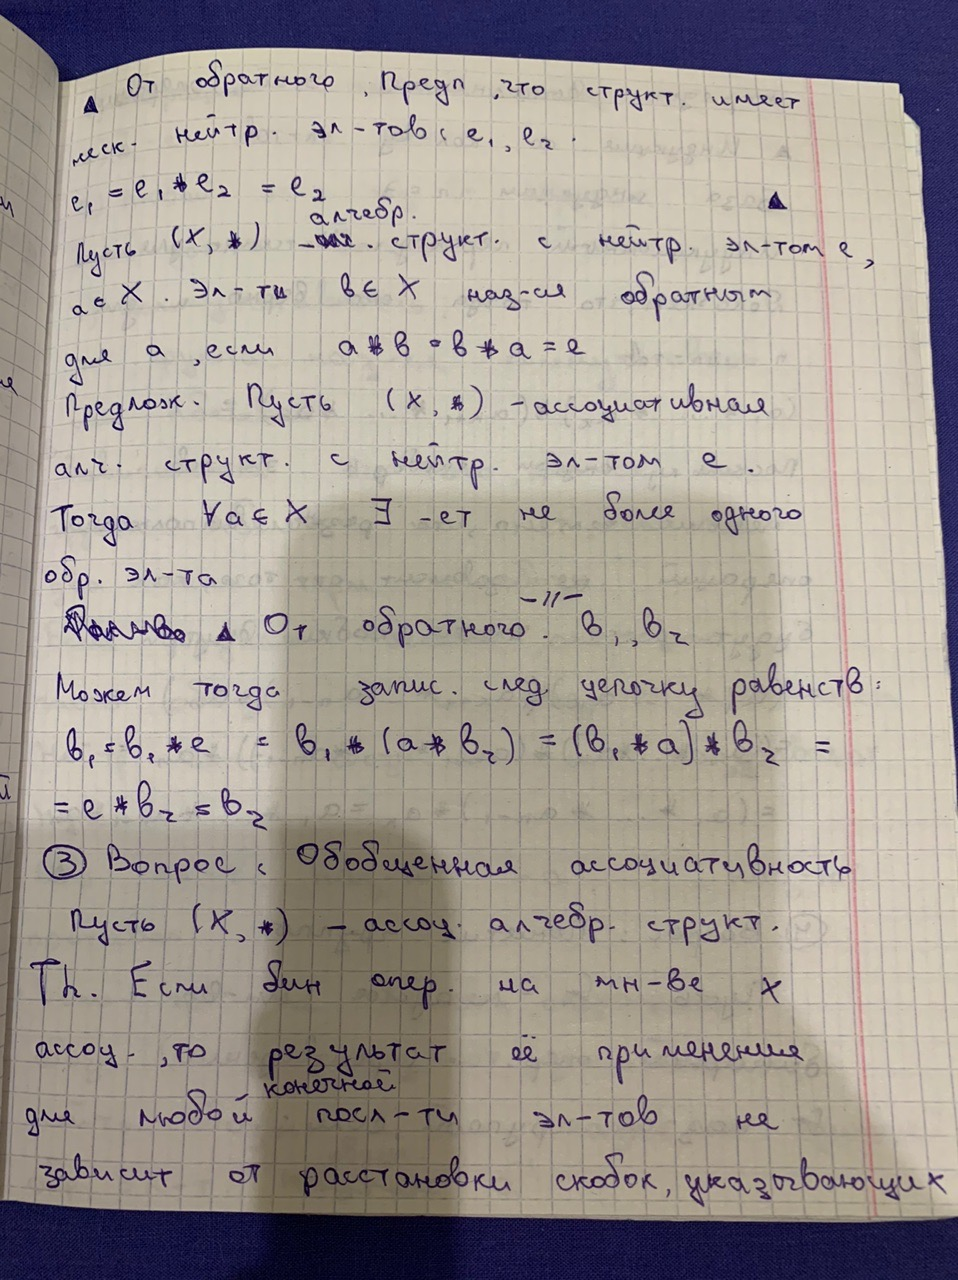 ▲ От обратного, Предп, что структ. имеет
неск. нейтр. эл-тов: e₁, e₂.
e₁ = e₁ * e₂ = e₂ ▲
алгебр.
Пусть (X, *) – структ. с нейтр. эл-том e,
a ∈ X. Эл-ти в ∈ X наз-ся обратным
для a, если a * в = в * a = e
Предлож. Пусть (X, *) – ассоциативная
алг. структ. с нейтр. эл-том e.
Тогда ∀a ∈ X ∃-ет не более одного
обр. эл-та
▲ От обратного. –//– в₁, в₂
Можем тогда запис. след цепочку равенств:
в₁ = в₁ * e = в₁ * (a * в₂) = (в₁ * a) * в₂ =
= e * в₂ = в₂
③ Вопрос: Обобщенная ассоциативность
Пусть (X, *) – ассоц. алгебр. структ.
Th. Если бин опер. на мн-ве X
ассоц., то результат её применения
конечной
для любой посл-ти эл-тов не
зависит от расстановки скобок, указывающих